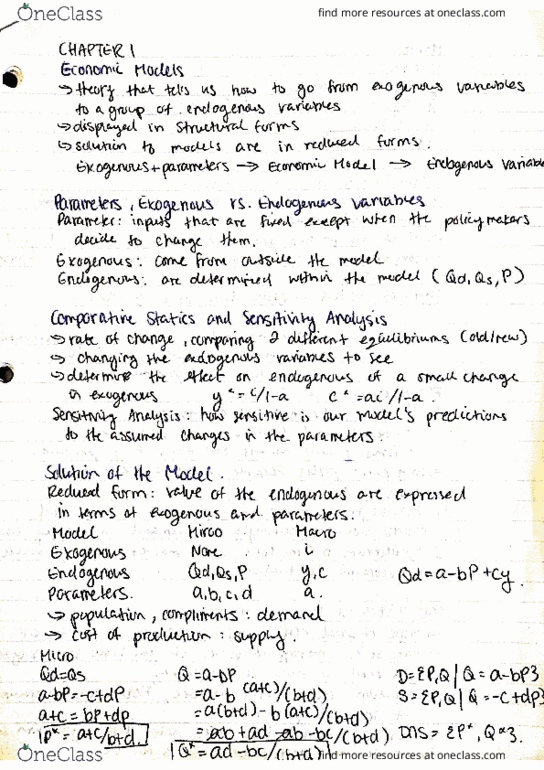 OneClass
find more resources at oneclass.com
CHAPTER 1
Economic Models
→ theory that tells us how to go from exogenous variables
to a group of endogenous variables
→ displayed in structural forms
→ solution to models are in reduced forms.
Exogenous + parameters → Economic Model → Endogenous Variable
Parameters, Exogenous vs. Endogenous variables
Parameter: inputs that are fixed except when the policymakers
decide to change them.
Exogenous: come from outside the model
Endogenous: are determined within the model (Qd, Qs, P)
Comparative Statics and Sensitivity Analysis
→ rate of change, comparing 2 different equilibriums (old/new)
→ changing the exogenous variables to see
→ determine the effect on endogenous of a small change
in exogenous y* = i/1-a c* = ai/1-a.
Sensitivity Analysis: how sensitive is our model's predictions
to the assumed changes in the parameters.
Solution of the Model.
Reduced form: value of the endogenous are expressed
in terms of exogenous and parameters.
Model Mirco Macro
Exogenous None i
Endogenous Qd, Qs, P y, c
Parameters. a, b, c, d a. Qd = a-bP + cy.
→ population, compliments: demand
→ cost of production: supply.
Micro
Qd=Qs Q = a-bP D = {P,Q | Q = a-bP}
a-bP=-c+dP = a-b (a+c)/(b+d) S = {P,Q | Q = -c+dP}
a+c = bP+dp = a(b+d)-b(a+c)/(b+d)
P* = a+c/b+d. = ab+ad-ab-bc/(b+d) DnS = {P*, Q*}.
Q* = ad-bc/(b+d)
OneClass
find more resources at oneclass.com